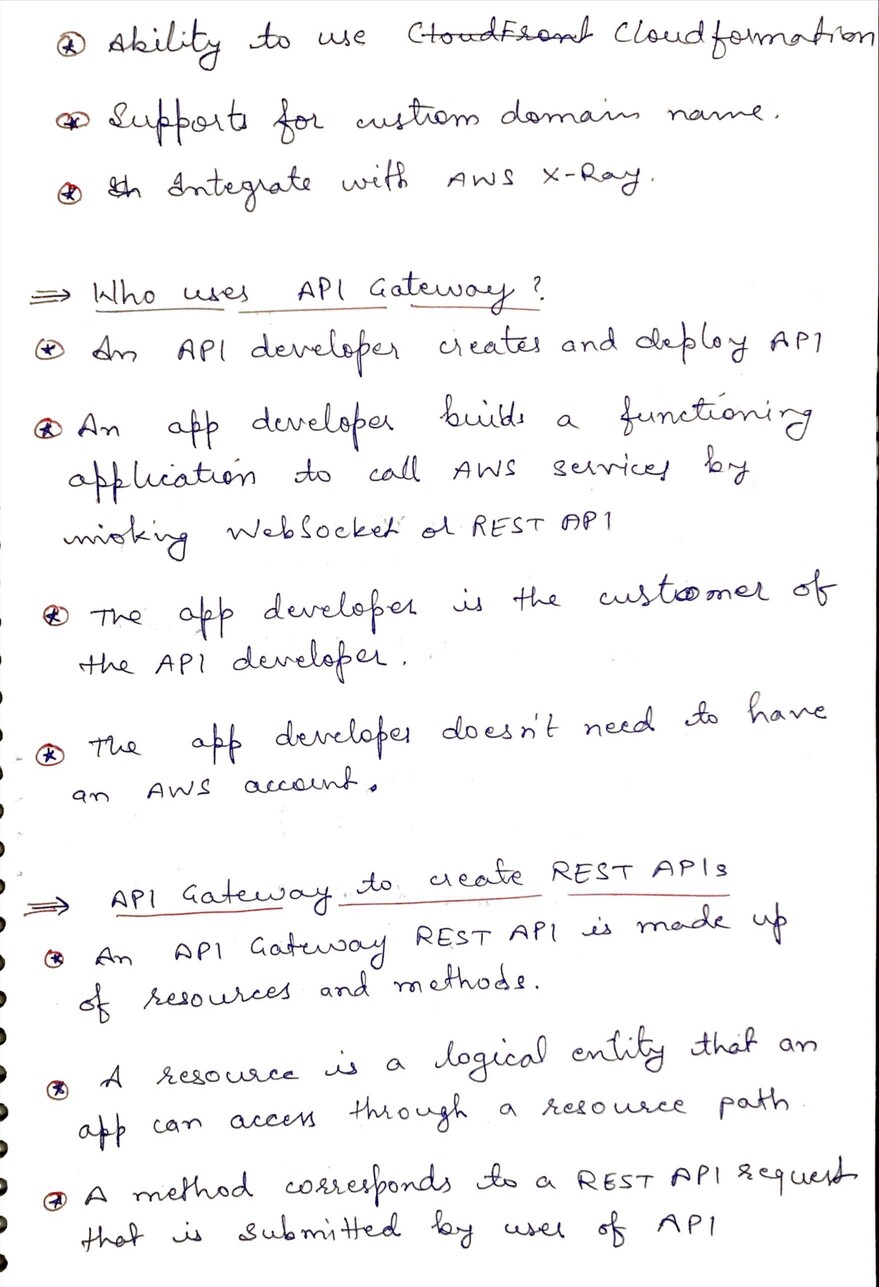 ⊛ Ability to use ~~CloudFront~~ Cloudformation
⊛ Supports for custiom domain name.
⊛ ~~In~~ Integrate with AWS X-Ray.
⇒ Who uses API Gateway?
⊛ An API developer creates and deploy API
⊛ An app developer builds a functioning
application to call AWS services by
making WebSocket or REST API
⊛ The app developer is the customer of
the API developer.
⊛ The app developer doesn't need to have
an AWS account.
⇒ API Gateway to create REST APIs
⊛ An API Gateway REST API is made up
of resources and methods.
⊛ A resource is a logical entity that an
app can access through a resource path.
⊛ A method corresponds to a REST API request
that is submitted by user of API